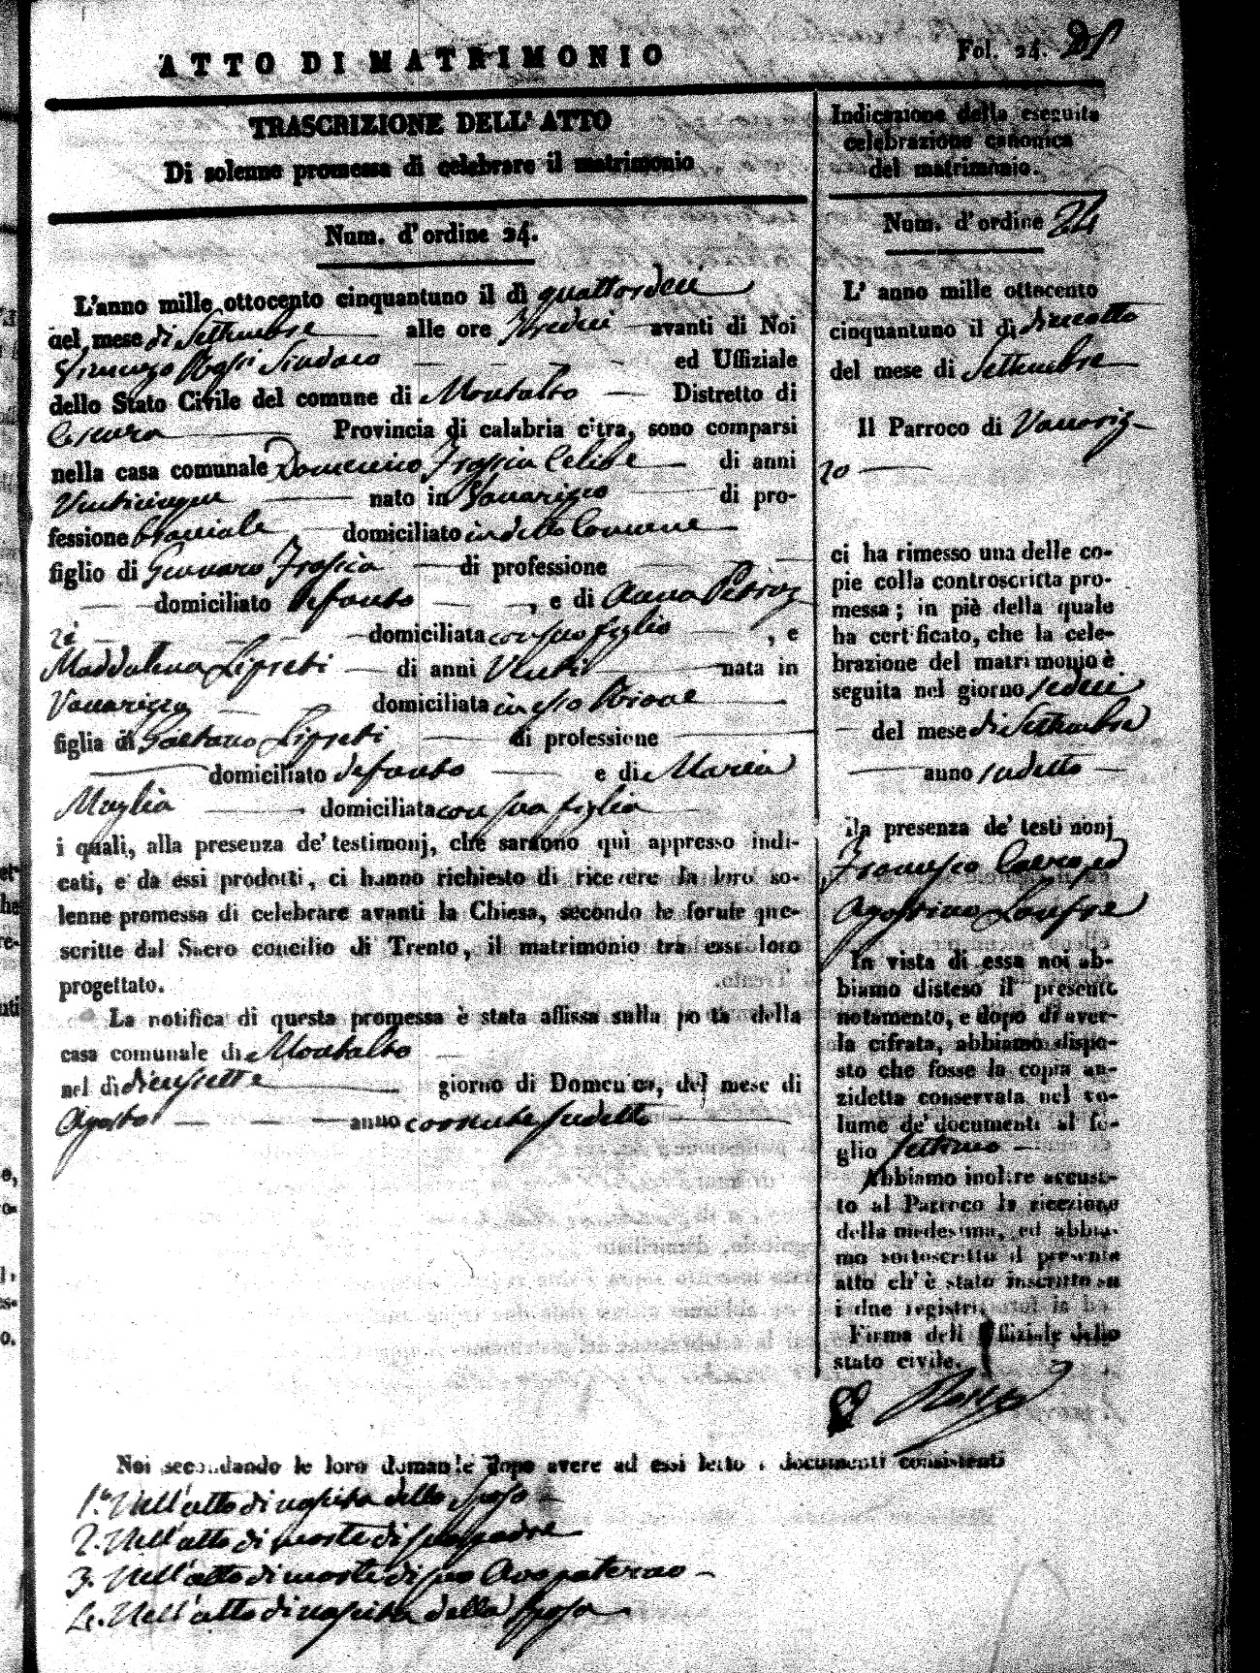 ATTO DI MATRIMONIO
Fol. 24.
TRASCRIZIONE DELL'ATTO
Di solenne promessa di celebrare il matrimonio
Num. d'ordine 24.
L'anno mille ottocento cinquantuno il dì quattordeci
del mese di Settembre alle ore avanti di Noi
Vincenzo Sindaco ed Uffiziale
dello Stato Civile del comune di Montalto Distretto di
Provincia di calabria citra, sono comparsi
nella casa comunale Domenico Frassia Celibe di anni
Venticinque nato in Vaccarizzo di pro-
fessione bracciale domiciliato in detto Comune
figlio di Gennaro Frassia di professione
domiciliato defonto , e di Anna Petroz
zi domiciliata con suo figlio , e
Maddalena Lipreti di anni Venti nata in
Vaccarizzo domiciliata in esso
figlia di Gaetano Lipreti di professione
domiciliato defonto e di Maria
Muglia domiciliata con sua figlia
i quali, alla presenza de' testimonj, che saranno quì appresso indi-
cati, e da essi prodotti, ci hanno richiesto di ricevere la loro so-
lenne promessa di celebrare avanti la Chiesa, secondo le forme pre-
scritte dal Sacro concilio di Trento, il matrimonio tra essi loro
progettato.
La notifica di questa promessa è stata affissa sulla porta della
casa comunale di Montalto
nel dì diciassette giorno di Domenica, del mese di
Agosto anno corrente sudetto
Noi secondando le loro domande dopo avere ad essi letto i documenti consistenti
1.° Nell'atto di nascita dello sposo
2. Nell'atto di morte di suo padre
3. Nell'atto di morte di suo Avo paterno
4. Nell'atto di nascita della sposa
Indicazione della eseguita
celebrazione canonica
del matrimonio.
Num. d'ordine 24
L' anno mille ottocento
cinquantuno il dì dieciotto
del mese di Settembre
Il Parroco di Vaccariz-
zo
ci ha rimesso una delle co-
pie colla controscritta pro-
messa; in piè della quale
ha certificato, che la cele-
brazione del matrimonio è
seguita nel giorno sedeci
del mese di Settembre
anno sudetto
alla presenza de' testimonj
Francesco ed
Agostino
In vista di essa noi ab-
biamo disteso il presente
notamento, e dopo di aver-
la cifrata, abbiamo dispo-
sto che fosse la copia an-
zidetta conservata nel vo-
lume de' documenti al fo-
glio settimo
Abbiamo inoltre accusa-
to al Parroco la ricezione
della medesima, ed abbia-
mo sottoscritto il presente
atto ch'è stato inscritto su
i due registri.
Firma dell' Uffiziale dello
stato civile.